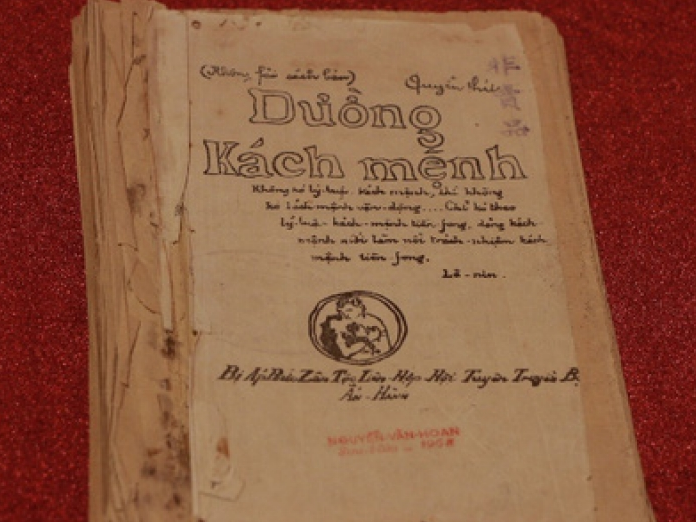 (Không fải sách bán) Quyển thứ
非賣品
Đường
Kách mệnh
Không có lý luận kách mệnh, thì không
có kách mệnh vận-động.... Chỉ có theo
lý luận kách-mệnh tiền-fong, đảng kách-
mệnh mới làm nổi trách-nhiệm kách
mệnh tiền-fong.
Lê-nin.
Bị Áp Bức Dân Tộc Liên-Hợp Hội Tuyên Truyền B.
Ấn-Hành
NGUYỄN-VĂN-HOAN